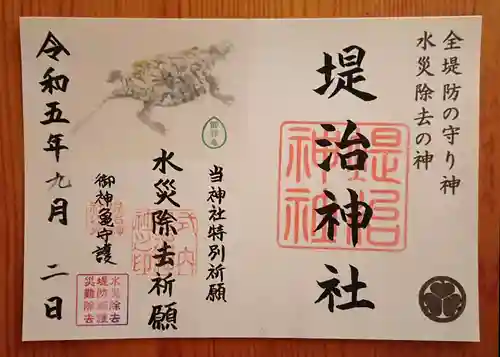 全堤防の守り神
水災除去の神
堤治神社
堤治
神社
当神社特別祈願
水災除去祈願
式内
御神亀守護
水災除去
堤防祈護
災難除去
令和五年九月二日